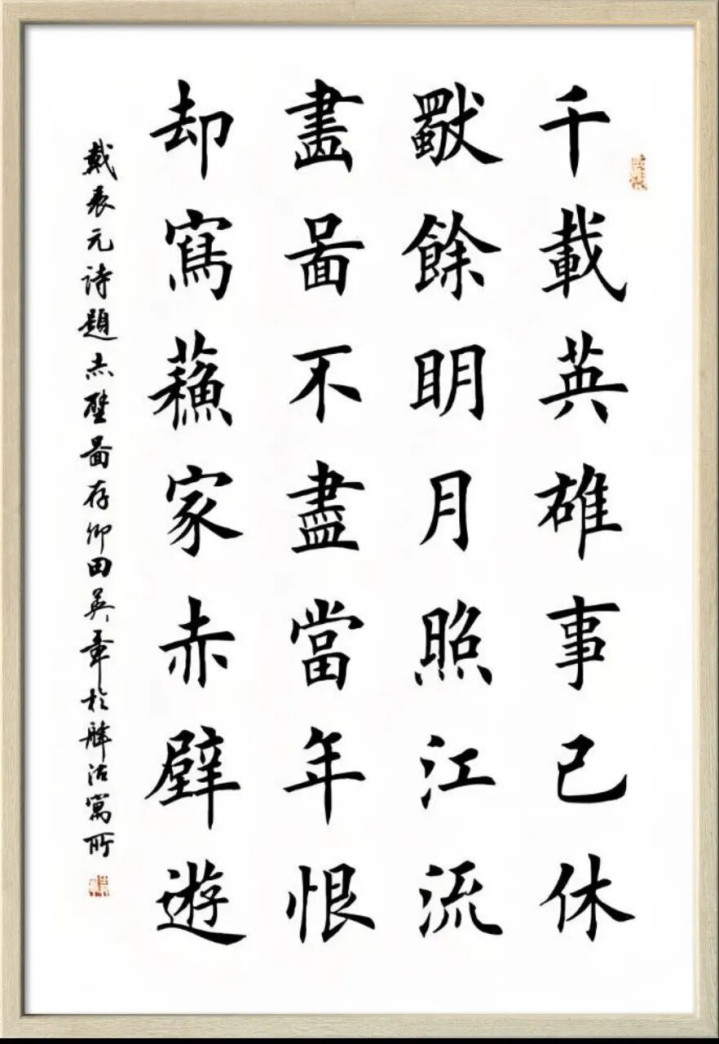 千載英雄事已休
獨餘明月照江流
畫圖不盡當年恨
却寫蘓家赤壁遊
戴表元詩題赤壁圖存卿田英章於津沽寓所